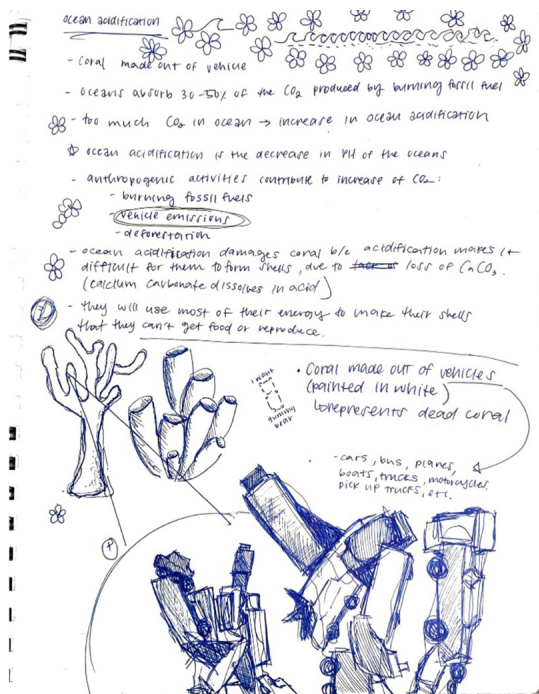 ocean acidification
- coral made out of vehicle
- oceans absorb 30-50% of the CO2 produced by burning fossil fuel
- too much CO2 in ocean → increase in ocean acidification
☆ ocean acidification is the decrease in PH of the oceans
- anthropogenic activities contribute to increase of CO2:
- burning fossil fuels
- vehicle emissions
- deforestation
- ocean acidification damages coral b/c acidification makes it
difficult for them to form shells, due to loss of CaCO3.
(calcium carbonate dissolves in acid)
- they will use most of their energy to make their shells
that they can't get food or reproduce.
• Coral made out of vehicles
(painted in white)
↳ represents dead coral
I want
gummy bear
- cars, bus, planes,
boats, trucks, motorcycles,
pick up trucks, etc.
+